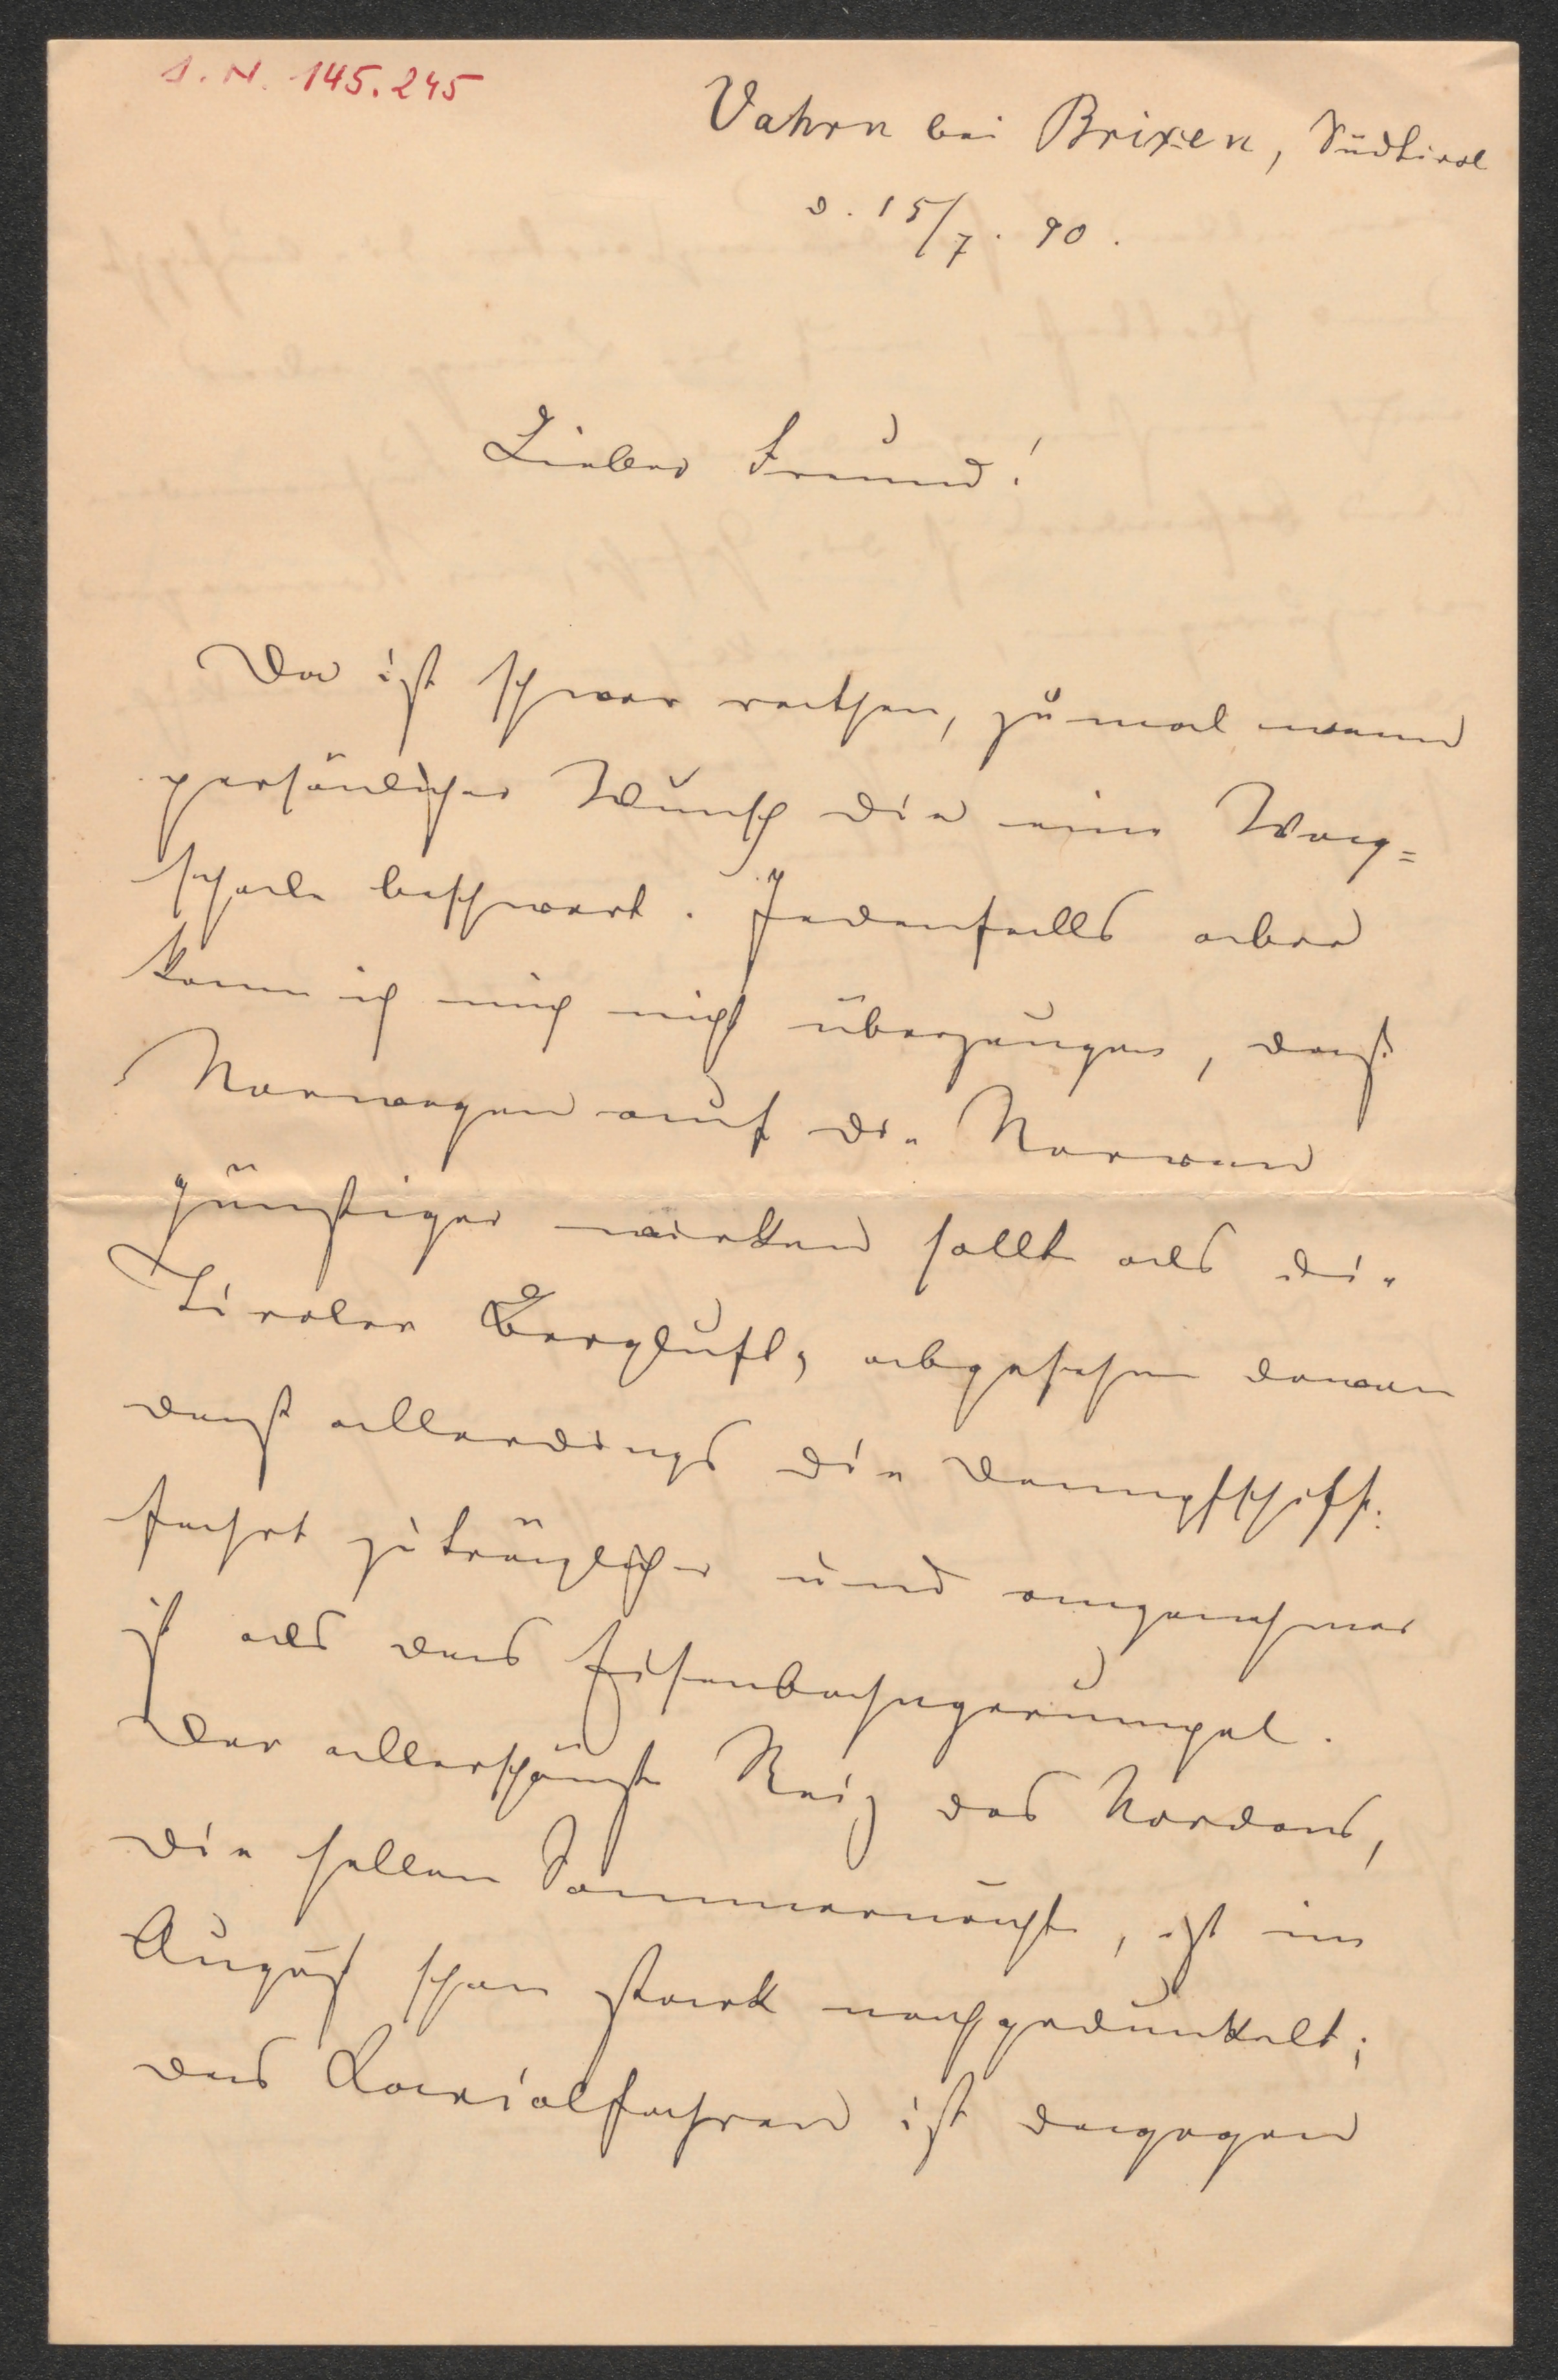 I. N. 145.245
Vahrn bei Brixen, Südtirol
d. 15/7. 90.
Lieber Freund!
Da ist schwer rathen, zumal wenn
persönlicher Wunsch die eine Wag=
schale beschwert. Jedenfalls aber
kann ich mich nicht überzeugen, daß
Norwegen auf die Nerven
günstiger wirken sollte als die
Tiroler Bergluft, abgesehen davon
daß allerdings die Dampfschiff=
fahrt zuträglicher und angenehmer
ist als das Eisenbahngerumpel.
Der allerschönste Reiz des Nordens,
die hellen Sommernächte, ist im
August schon stark nachgedunkelt;
das Kariolfahren ist dagegen